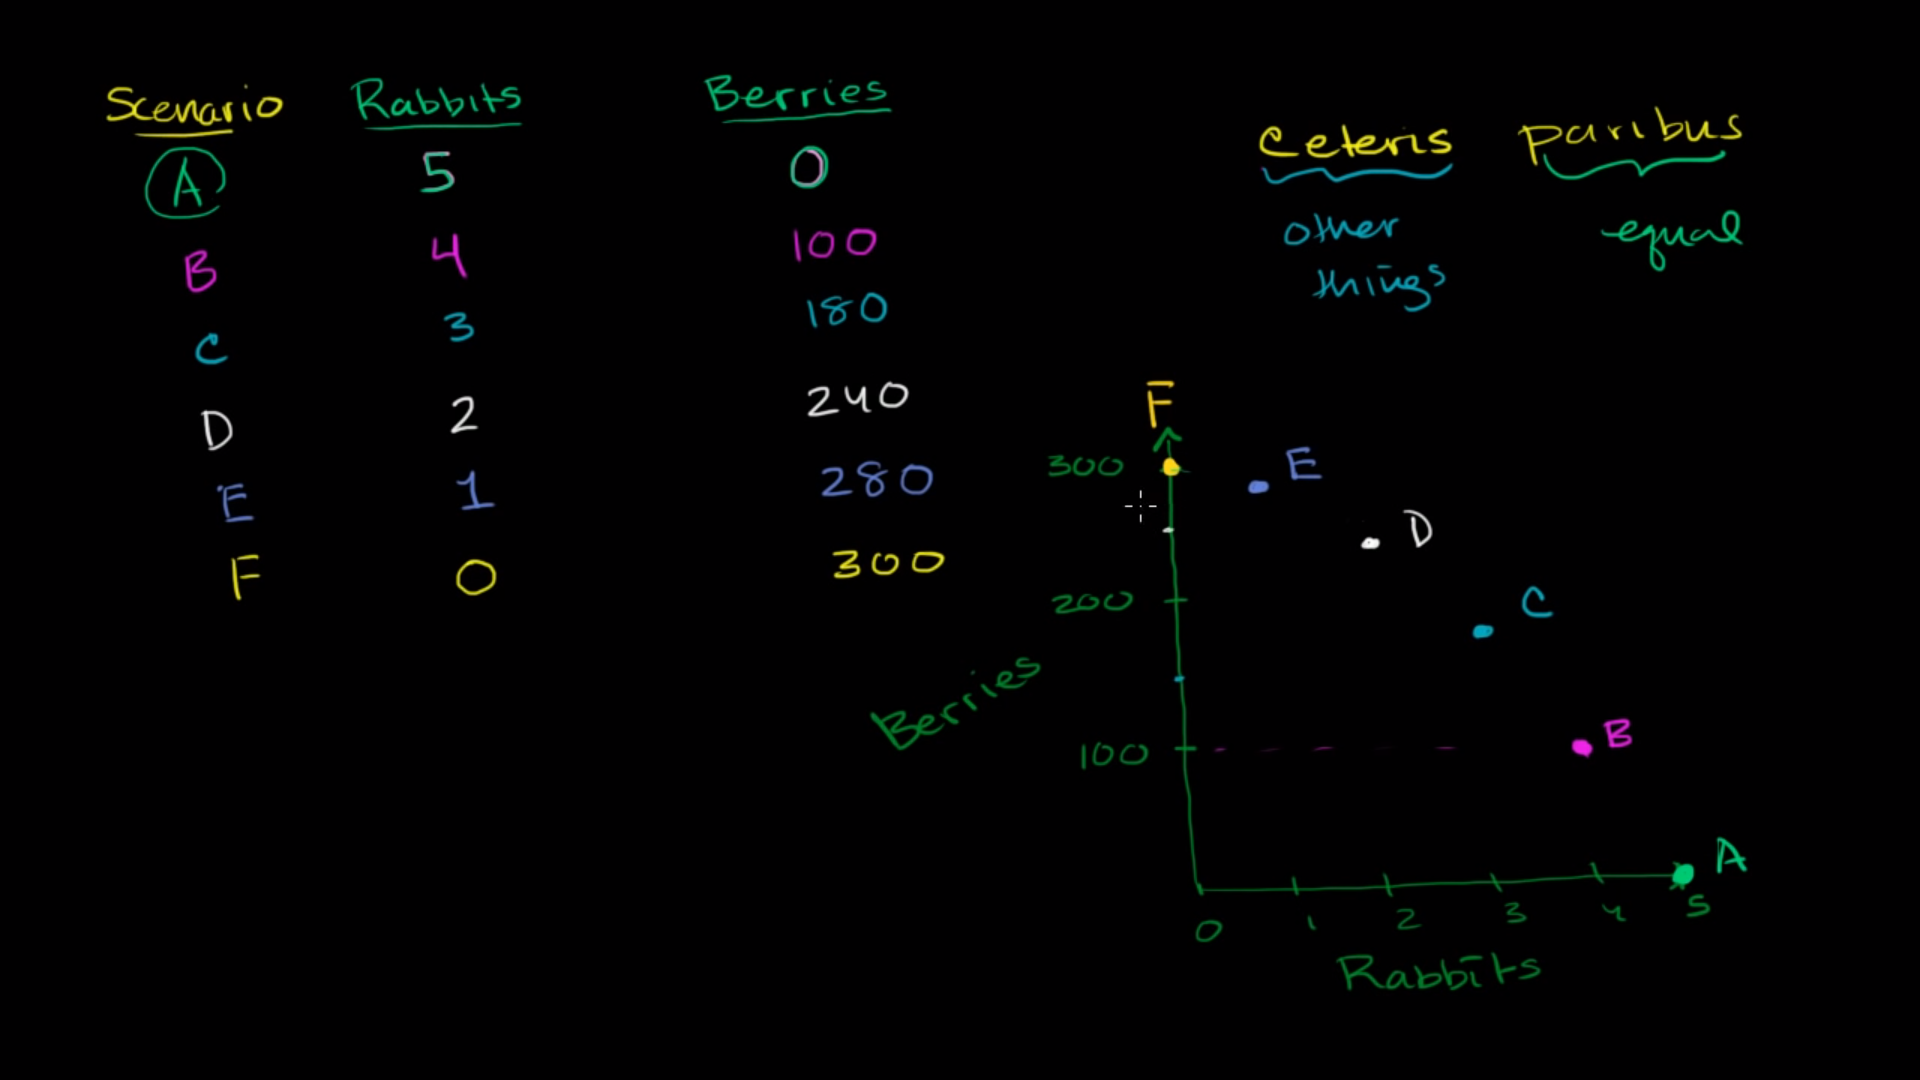 Scenario Rabbits Berries
A 5 0
B 4 100
C 3 180
D 2 240
E 1 280
F 0 300
Ceteris paribus
other equal
things
F
300 E
D
200 C
Berries
100 B
A
0 1 2 3 4 5
Rabbits